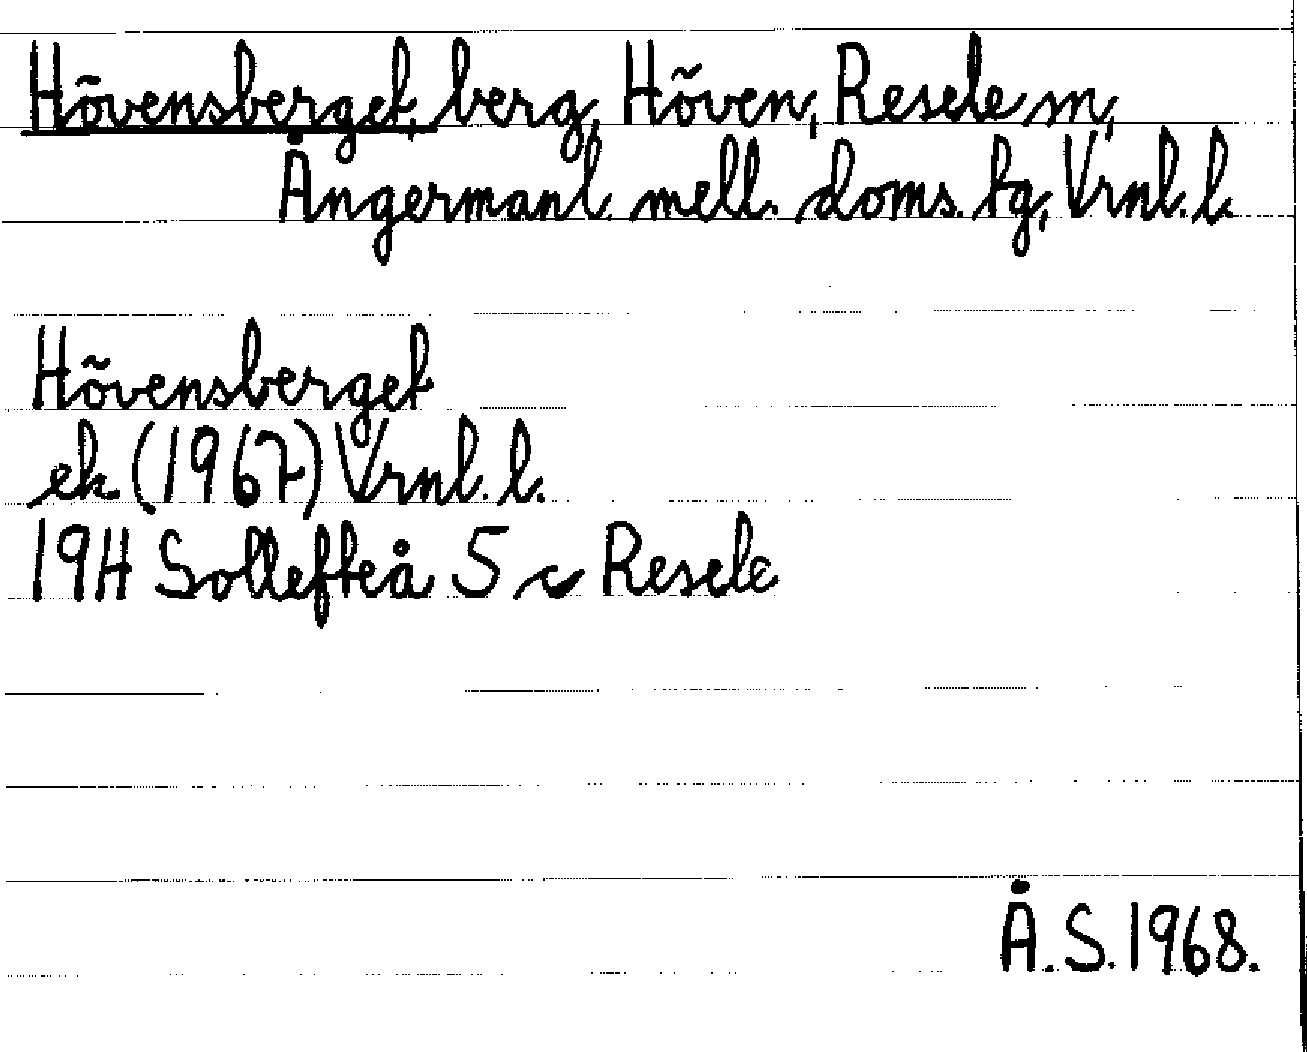 Hövensberget, berg, Höven, Resele sn,
Ångermanl. mell. doms. tg, Vrnl. l.
Hövensberget
ek. (1967) Vrnl. l.
19H Sollefteå 5 c Resele
Å.S. 1968.